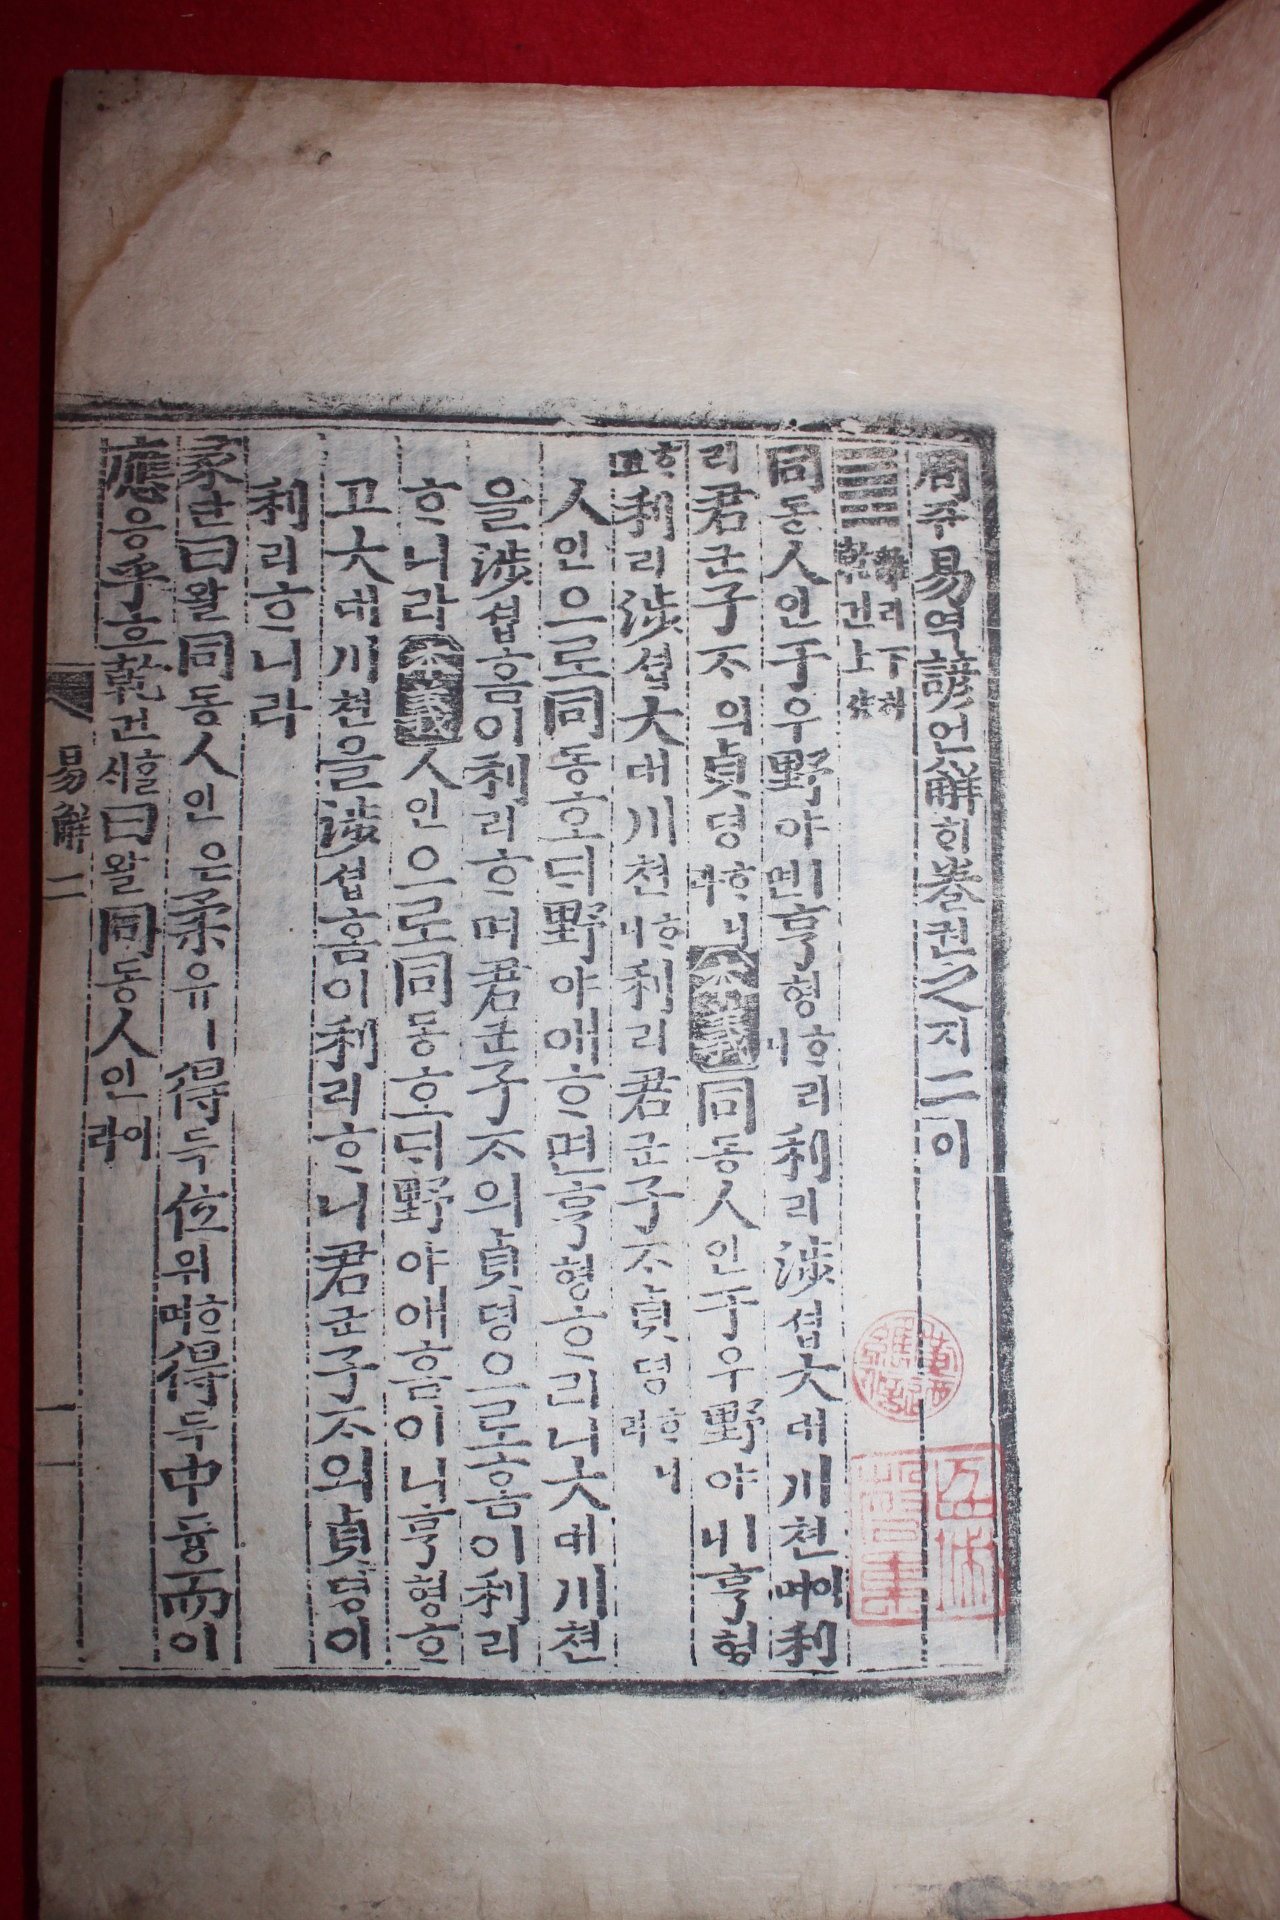 周쥬易역諺언解ᄒᆡ卷권之지二이
䷌離리下하乾건上샹
同동人인于우野야ㅣ면亨형ᄒᆞ리니利리涉셥大대川쳔이며利
리君군子ᄌᆞ의貞뎡ᄒᆞ니라本義同동人인于우野야ㅣ니亨형
ᄒᆞ고利리涉셥大대川쳔ᄒᆞ니利리君군子ᄌᆞ貞뎡ᄒᆞ니라
人인으로同동호ᄃᆡ野야애ᄒᆞ면亨형ᄒᆞ리니大대川쳔
을涉셥홈이利리ᄒᆞ며君군子ᄌᆞ의貞뎡으로홈이利리
ᄒᆞ니라本義人인으로同동호ᄃᆡ野야애홈이니亨형ᄒᆞ
고大대川쳔을涉셥홈이利리ᄒᆞ니君군子ᄌᆞ의貞뎡이
利리ᄒᆞ니라
彖단曰왈同동人인은柔유ㅣ得득位위ᄒᆞ며得득中듕而이
應응乎호乾건ᄒᆞᆯᄉᆡ曰왈同동人인이라
易解二 一